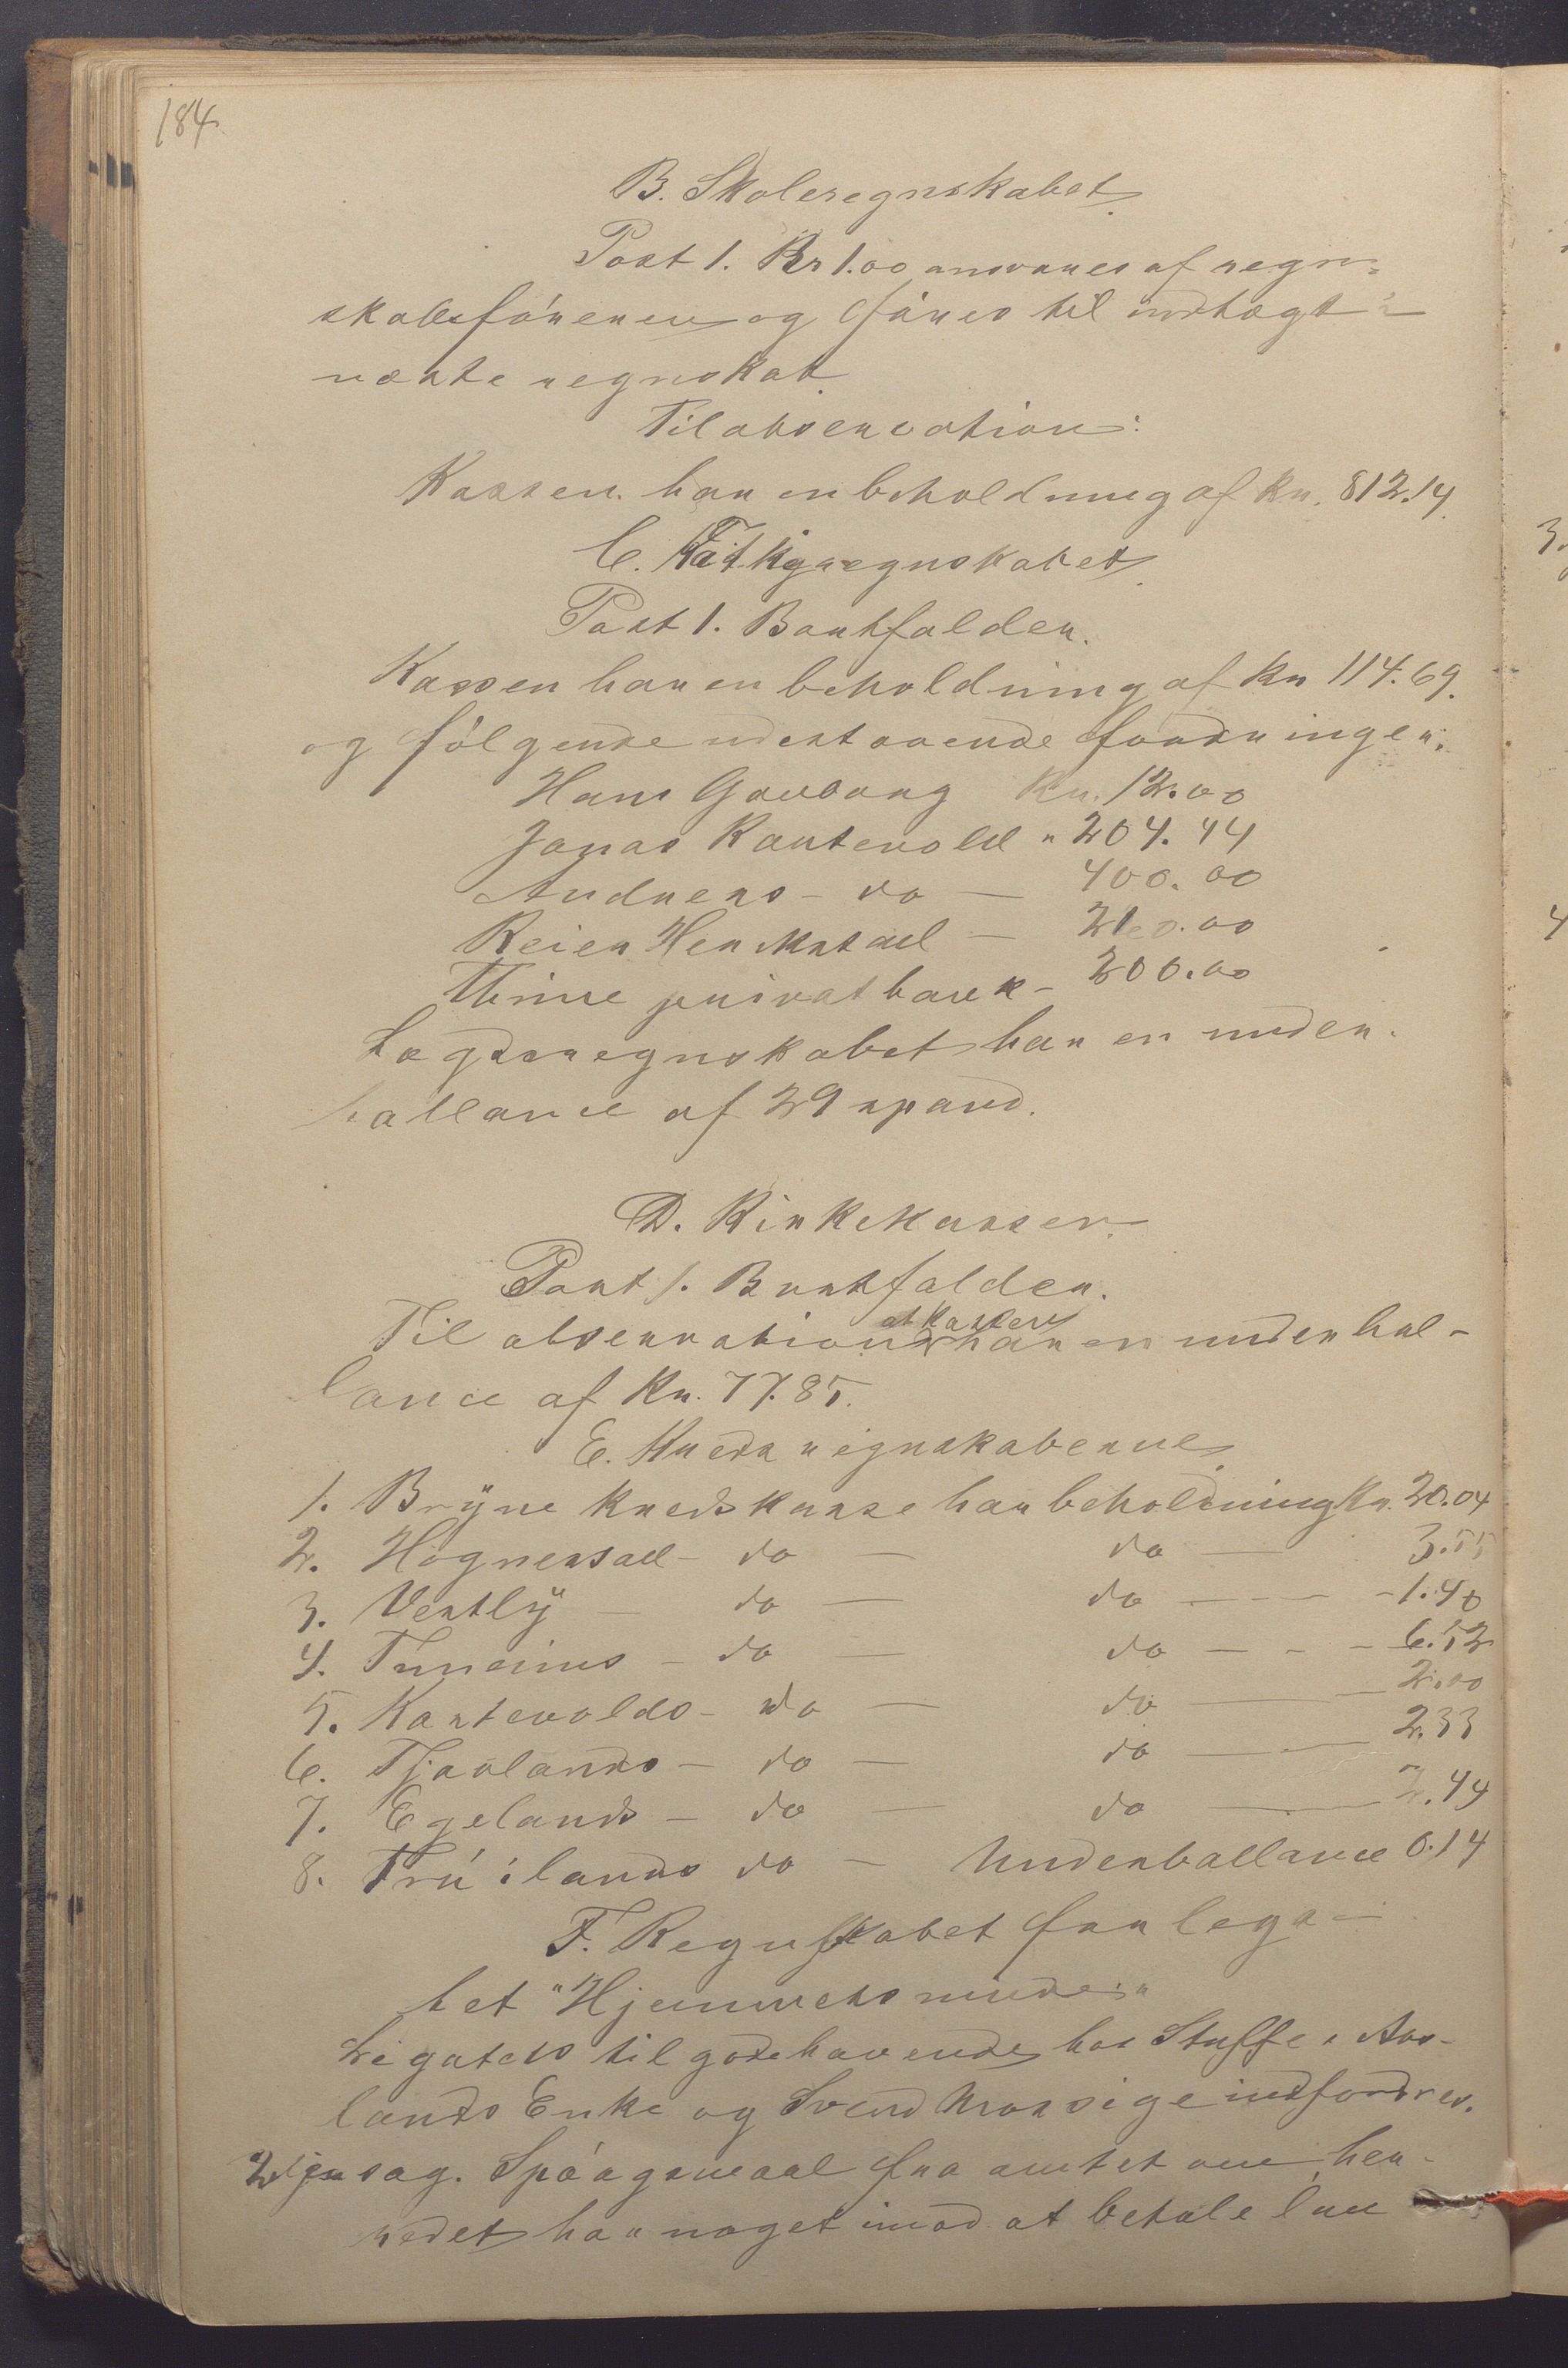 184.
B. Skoleregnskabet.
Post 1. Kr 1.00 ansvares af regn-
skabsføreren og føres til indtægt i
næste regnskab.
Til observation:
Kassen har en beholdning af kr. 812.14.
C. Fattigregnskabet.
Post 1. Bortfalder.
Kassen har en beholdning af kr 114.69.
og følgende udestaaende fordringer:
Hans Kr. 12.00
Jonas Kartevold " 204.44
Andreas - do - 400.00
Reier Herikstad - 210.00
Thime privatbank - 200.00
Lægdsregnskabet har en under-
ballance af 29 spand.
D. Kirkekassen.
Post 1. Bortfalder.
Til observation at kassen har en underbal-
lance af Kr. 77.85.
E. Kredsregnskaberne.
1. Bryne kredskasse har beholdning Kr. 20.04
2. Hognestad - do - do - 3.55
3. Vestly - do - do - 1.40
4. Tunheims - do - do - 6.52
5. Kartevolds - do - do - 2.00
6. Tjaalands - do - do - 2.33
7. Egelands - do - do - 2.44
8. Frøilands do - Underballance 0.14
F. Regnskabet for lega-
tet "Hjemmets minde"
Legatets tilgodehavende hos Staffe Aas-
lands Enke og Svend Mossige indfordres.
2den sag. Spørgsmaal fra amtet om her-
redet har noget imod at betale